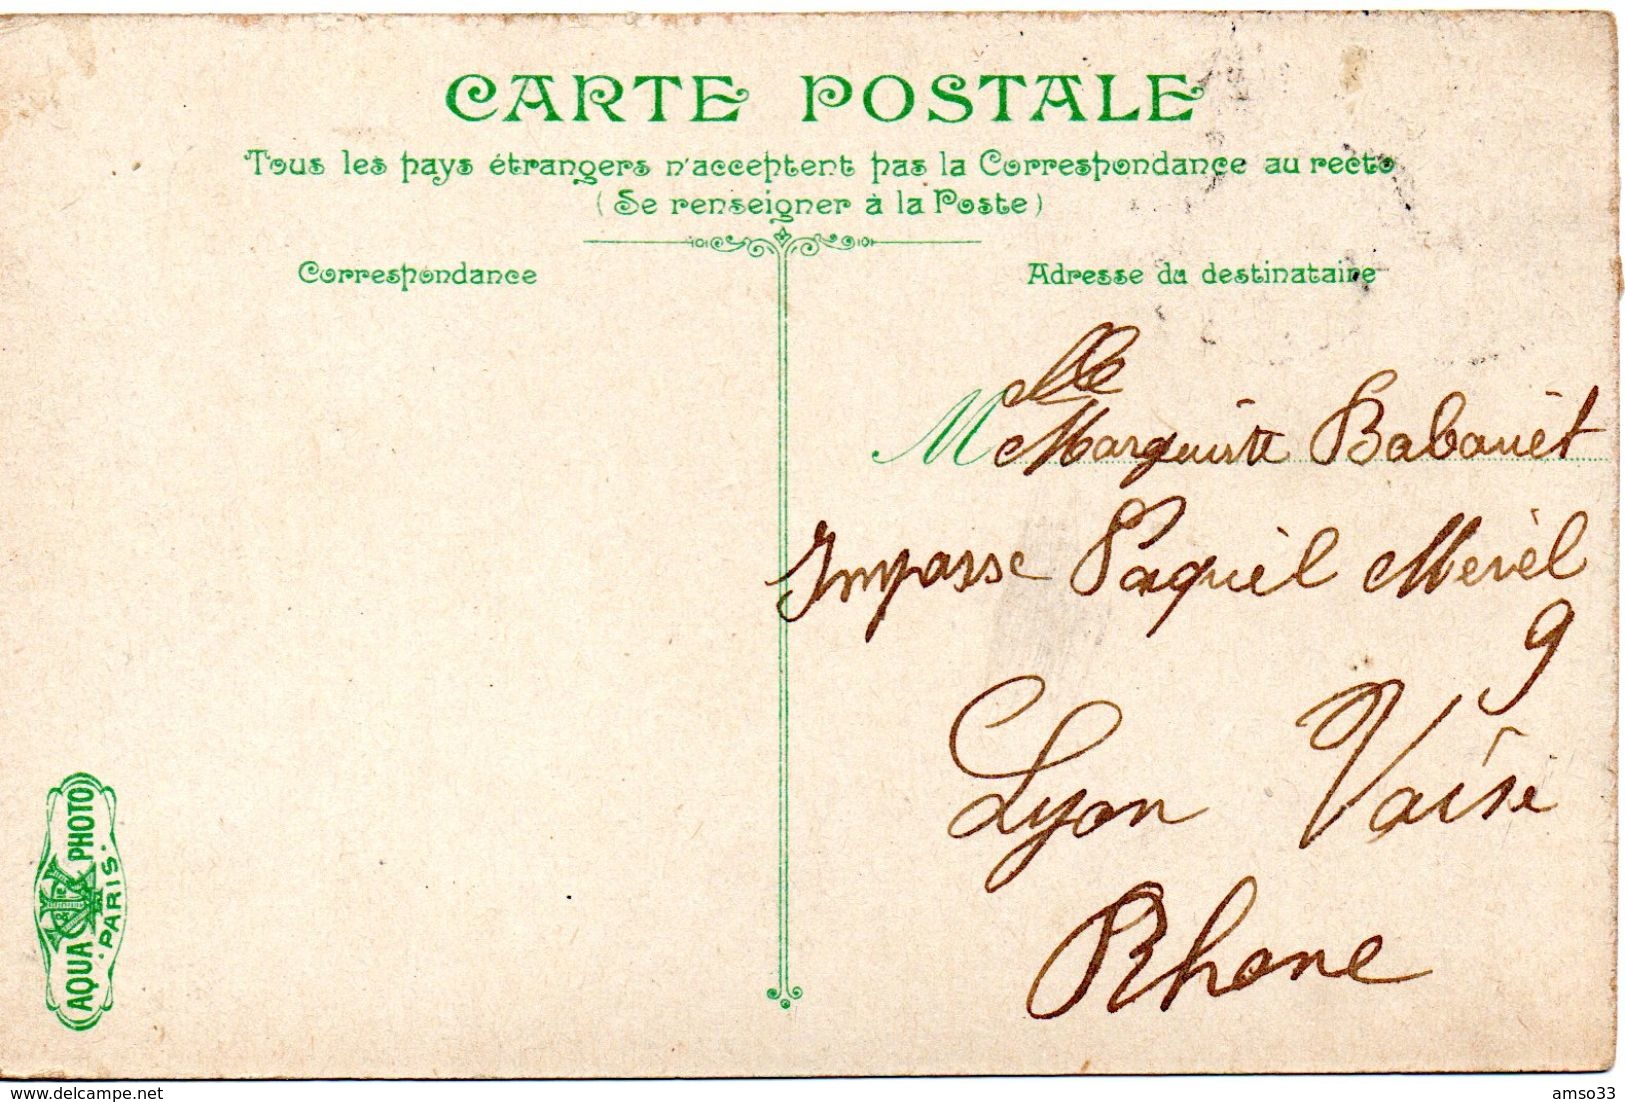 CARTE POSTALE
Tous les pays étrangers n'acceptent pas la Correspondance au recto
(Se renseigner à la Poste)
Correspondance
Adresse du destinataire
M elle
Marguerite Babouët
Impasse Paquel Merel
9
Lyon Vaise
Rhone
AQUA PHOTO
PARIS
www.delcampe.net
amso33